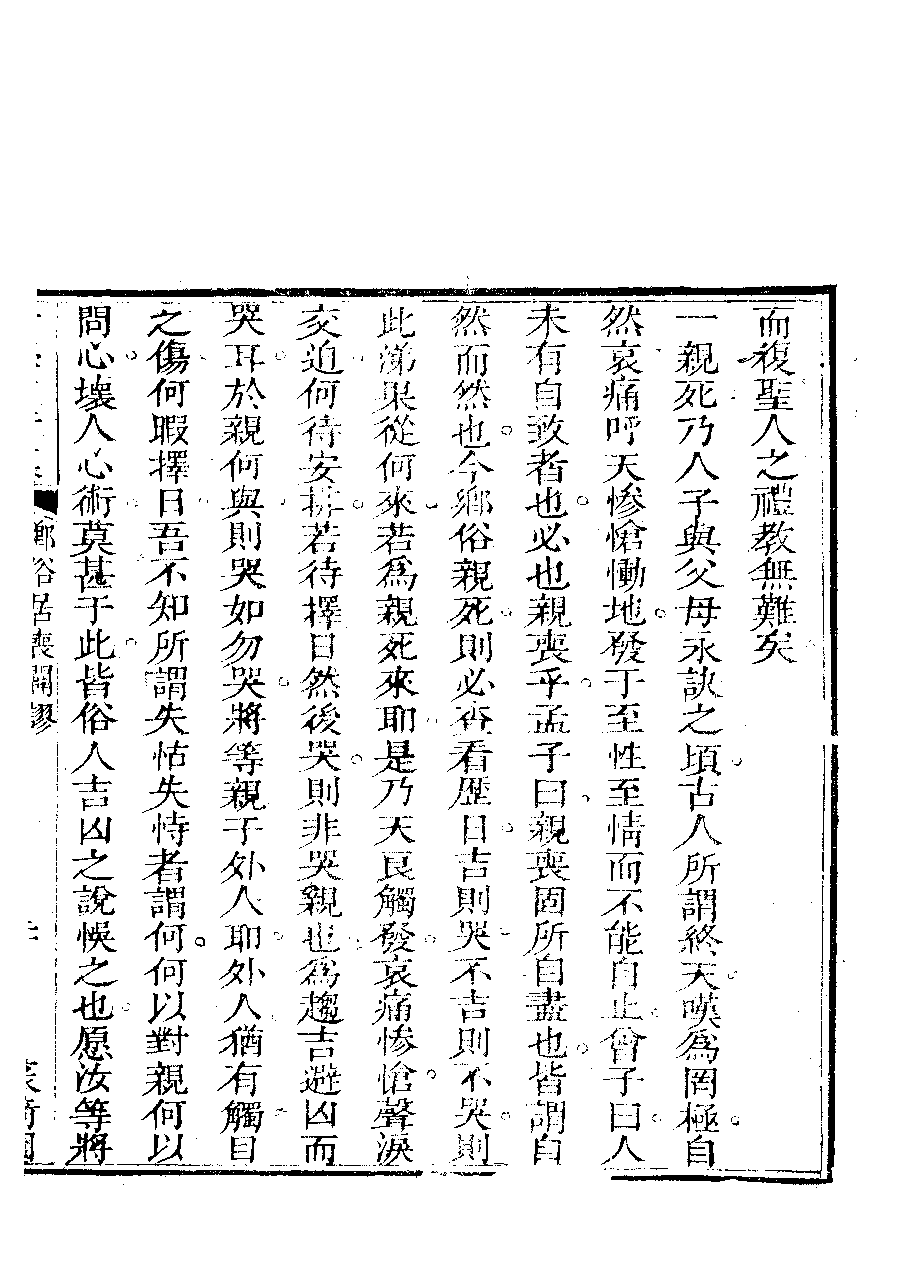 而復聖人之禮教無難矣
一親死乃人子與父母永訣之頃古人所謂終天嘆為罔極自
然哀痛呼天慘愴慟地發于至性至情而不能自止曾子曰人
未有自致者也必也親喪乎孟子曰親喪固所自盡也皆謂自
然而然也今鄉俗親死則必查看歷日吉則哭不吉則不哭則
此涕果從何來若為親死來耶是乃天良觸發哀痛慘愴聲淚
交迫何待安排若待擇日然後哭則非哭親也為趨吉避凶而
哭耳於親何與則哭如勿哭將等親子外人耶外人猶有觸目
之傷何暇擇日吾不知所謂失怙失恃者謂何何以對親何以
問心壞人心術莫甚于此皆俗人吉凶之說悞之也愿汝等將
鄉俗居喪闢謬